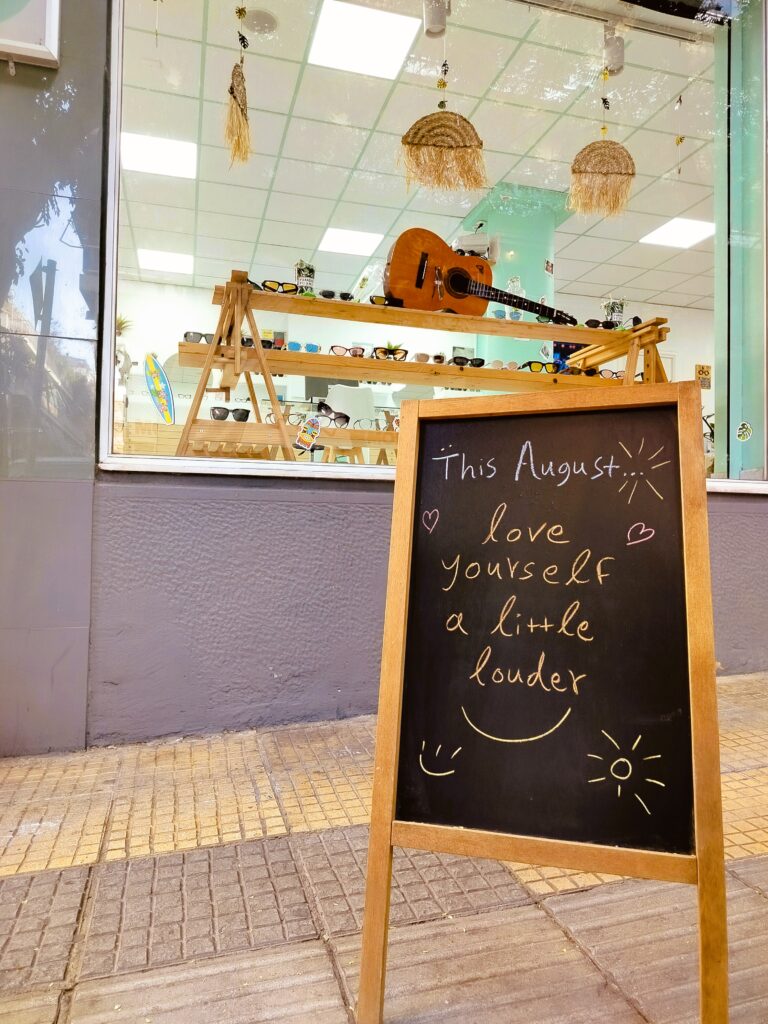 This August...
love
yourself
a little
louder